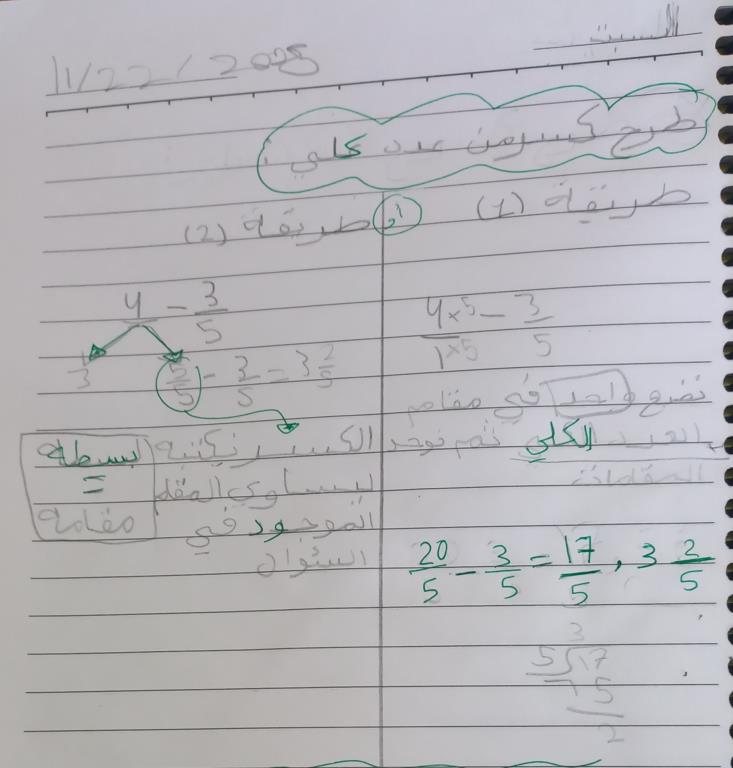 السبت
11/22/2025
طرح كسر من عدد كلي :
طريقة (1)
4×5/1×5 - 3/5
نضع واحد في مقام
العدد الكلي ثم نوحد
المقامات
20/5 - 3/5 = 17/5 , 3 2/5
3
5√17
15
2
أو
طريقة (2)
4 - 3/5
3
5/5 - 3/5 = 3 2/5
الكسر نكتبه
ليساوي المقام
الموجود في
السؤال
بسطه
=
مقامه